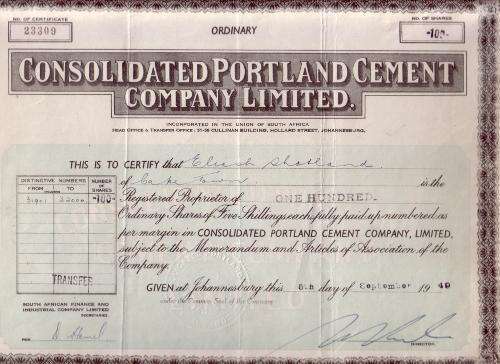 NO. OF CERTIFICATE
23309
ORDINARY
NO. OF SHARES
-100-
CONSOLIDATED PORTLAND CEMENT
COMPANY LIMITED.
INCORPORATED IN THE UNION OF SOUTH AFRICA
HEAD OFFICE & TRANSFER OFFICE: CULLINAN BUILDING, HOLLARD STREET, JOHANNESBURG.
THIS IS TO CERTIFY that Shotland
of Cape Town is the
Registered Proprietor of ONE HUNDRED-
Ordinary Shares of Five Shillings each, fully paid up numbered as
per margin in CONSOLIDATED PORTLAND CEMENT COMPANY, LIMITED,
subject to the Memorandum and Articles of Association of the
Company.
DISTINCTIVE NUMBERS
NUMBER OF SHARES
FROM
TO
-100-
TRANSFER
GIVEN at Johannesburg this 8th day of September 1949
under the Common Seal of the Company
SOUTH AFRICAN FINANCE AND
INDUSTRIAL COMPANY LIMITED
SECRETARIES
PER
DIRECTOR.